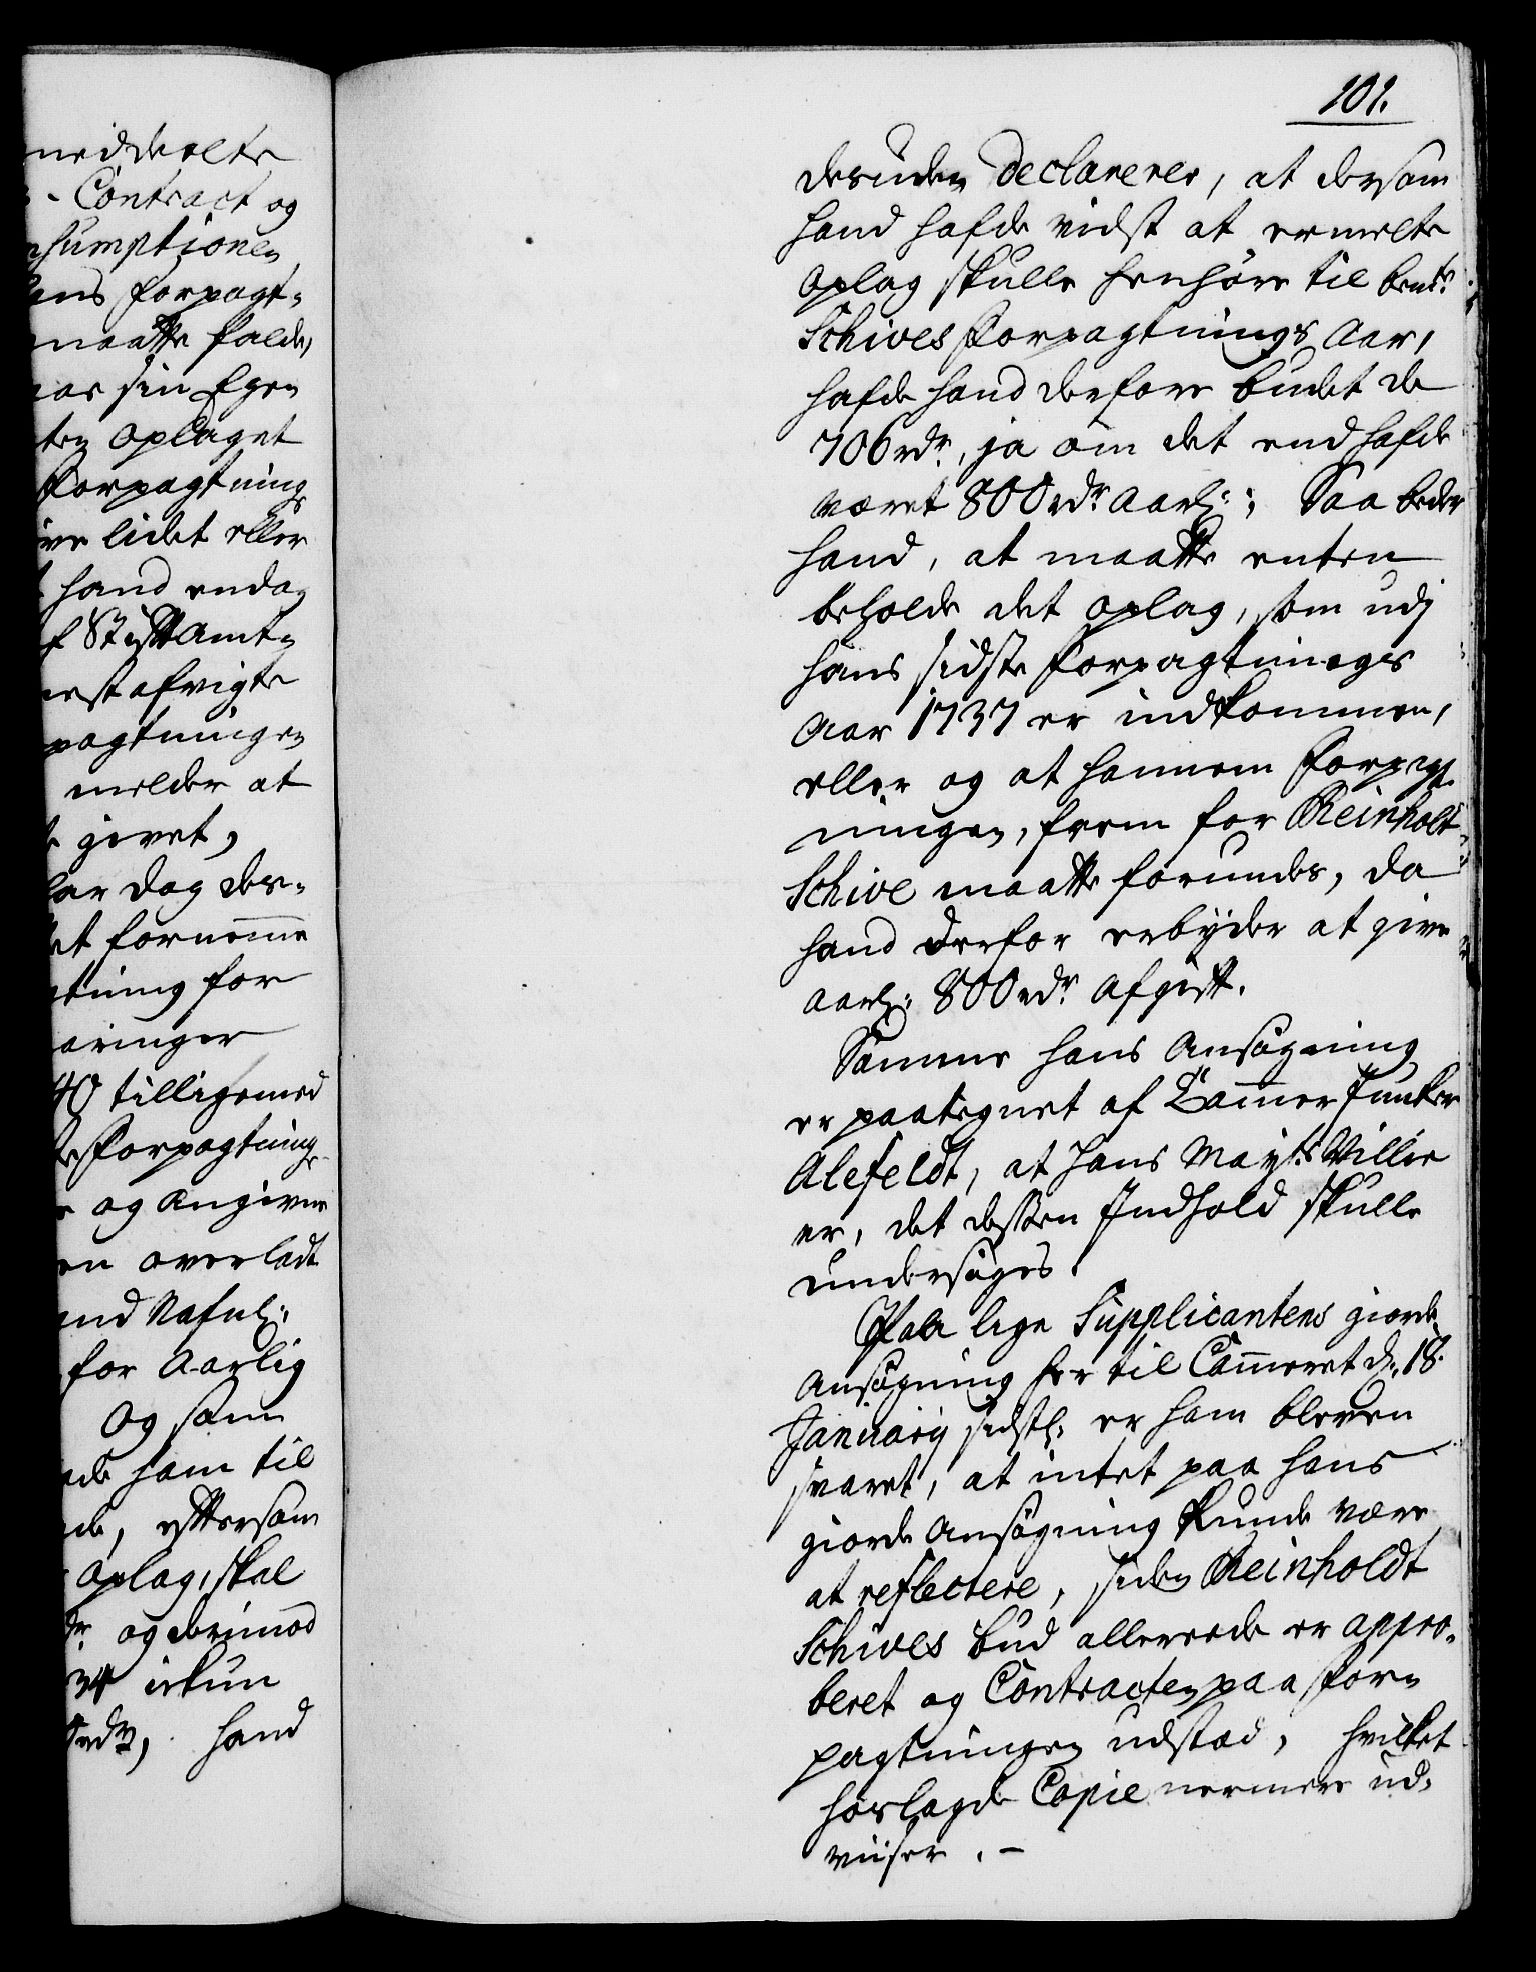 meddeelte
- Contract og
nsumptionen
ans forpagt-
maatte falde,
aar sin Egen
ten Oplaget
forpagtnings
ve lidet eller
hand endog
f Stiftamt-
nest afvigte
pagtningen
melder at
givet,
lar Dag des-
et fornemme
tning for
aringer
40 tilligemed
forpagtnings
og Angivne
en overladt
and Nafnl:
for Aarlig
Og som
ham til
de, eftersom
Oplag, skal
dr og derimod
34 ickun
rdr, hand
101.
desuden declarerer, at dersom
hand hafde vidst at ermelte
Oplag skulle henhøre til bemte
Schives Forpagtnings Aar,
hafde hand derfore budet de
706 rdr, ja om det end hafde
været 800 rdr Aarl:; Saa beder
hand, at maatte enten
beholde det Oplag, som udj
hans sidste Forpagtnings
Aar 1737 er indkommen,
eller og at hannem Forpagt-
ningen, frem for Reinholt
Schive maatte forundes, da
hand derfor erbyder at give
aarl: 800 rdr Afgift.
Samme hans Ansøgning
er paategnet af Cammer Juncker
Alefeldt, at Hans Mayts Villie
er, det dessen Indhold skulle
undersøges.
Paa lige Supplicantens giorde
Ansøgning her til Cammeret d: 18.
January sidstl: er ham bleven
svaret, at intet paa hans
giorde Ansøgning kunde være
at reflectere, siden Reinholdt
Schives bud allereede er appro-
beret og Contracten paa For-
pagtningen udstæd, hvilket
hoslagde Copie nermere ud-
viiser. -